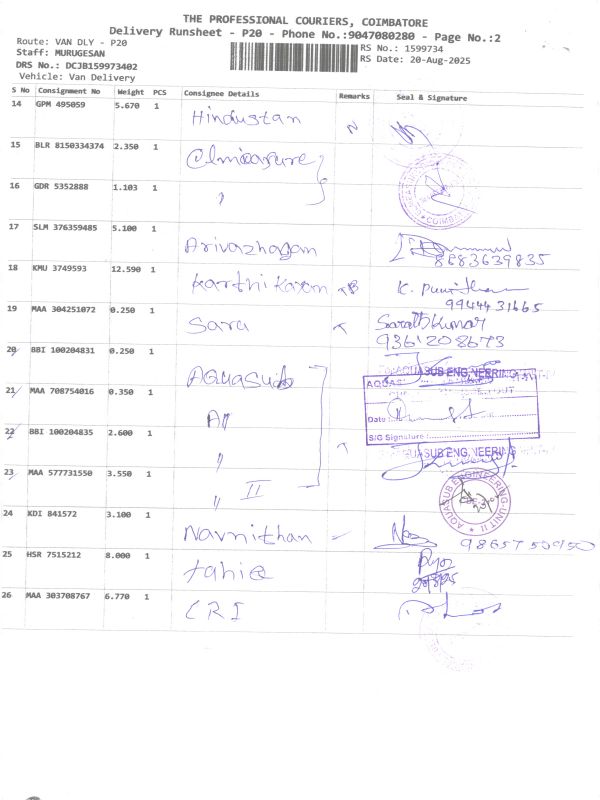 THE PROFESSIONAL COURIERS, COIMBATORE
Delivery Runsheet - P20 - Phone No.:9047080280 - Page No.:2
Route: VAN DLY - P20
Staff: MURUGESAN
DRS No.: DCJB159973402
Vehicle: Van Delivery
RS No.: 1599734
RS Date: 20-Aug-2025
S No Consignment No Weight PCS Consignee Details Remarks Seal & Signature
14 GPM 495059 5.670 1 Hindustan N
15 BLR 8150334374 2.350 1
16 GDR 5352888 1.103 1 "
COIMBA
17 SLM 376359485 5.100 1 Arivazhagan
8883639835
18 KMU 3749593 12.590 1 Karthikayan K.
9944431665
19 MAA 304251072 0.250 1 Sara Sarathkumar
9361208673
20 BBI 100204831 0.250 1 Aquasub
AQUASUB ENGINEERING
21 MAA 708754016 0.350 1 A
AQUASUB
Date
SIG Signature
22 BBI 100204835 2.600 1 "
AQUASUB ENGINEERING
23 MAA 577731550 3.550 1 " II
AQUASUB ENGINEERING-UNIT II
24 KDI 841572 3.100 1 Navnithan
25 HSR 7515212 8.000 1
26 MAA 303708767 6.770 1 CRI